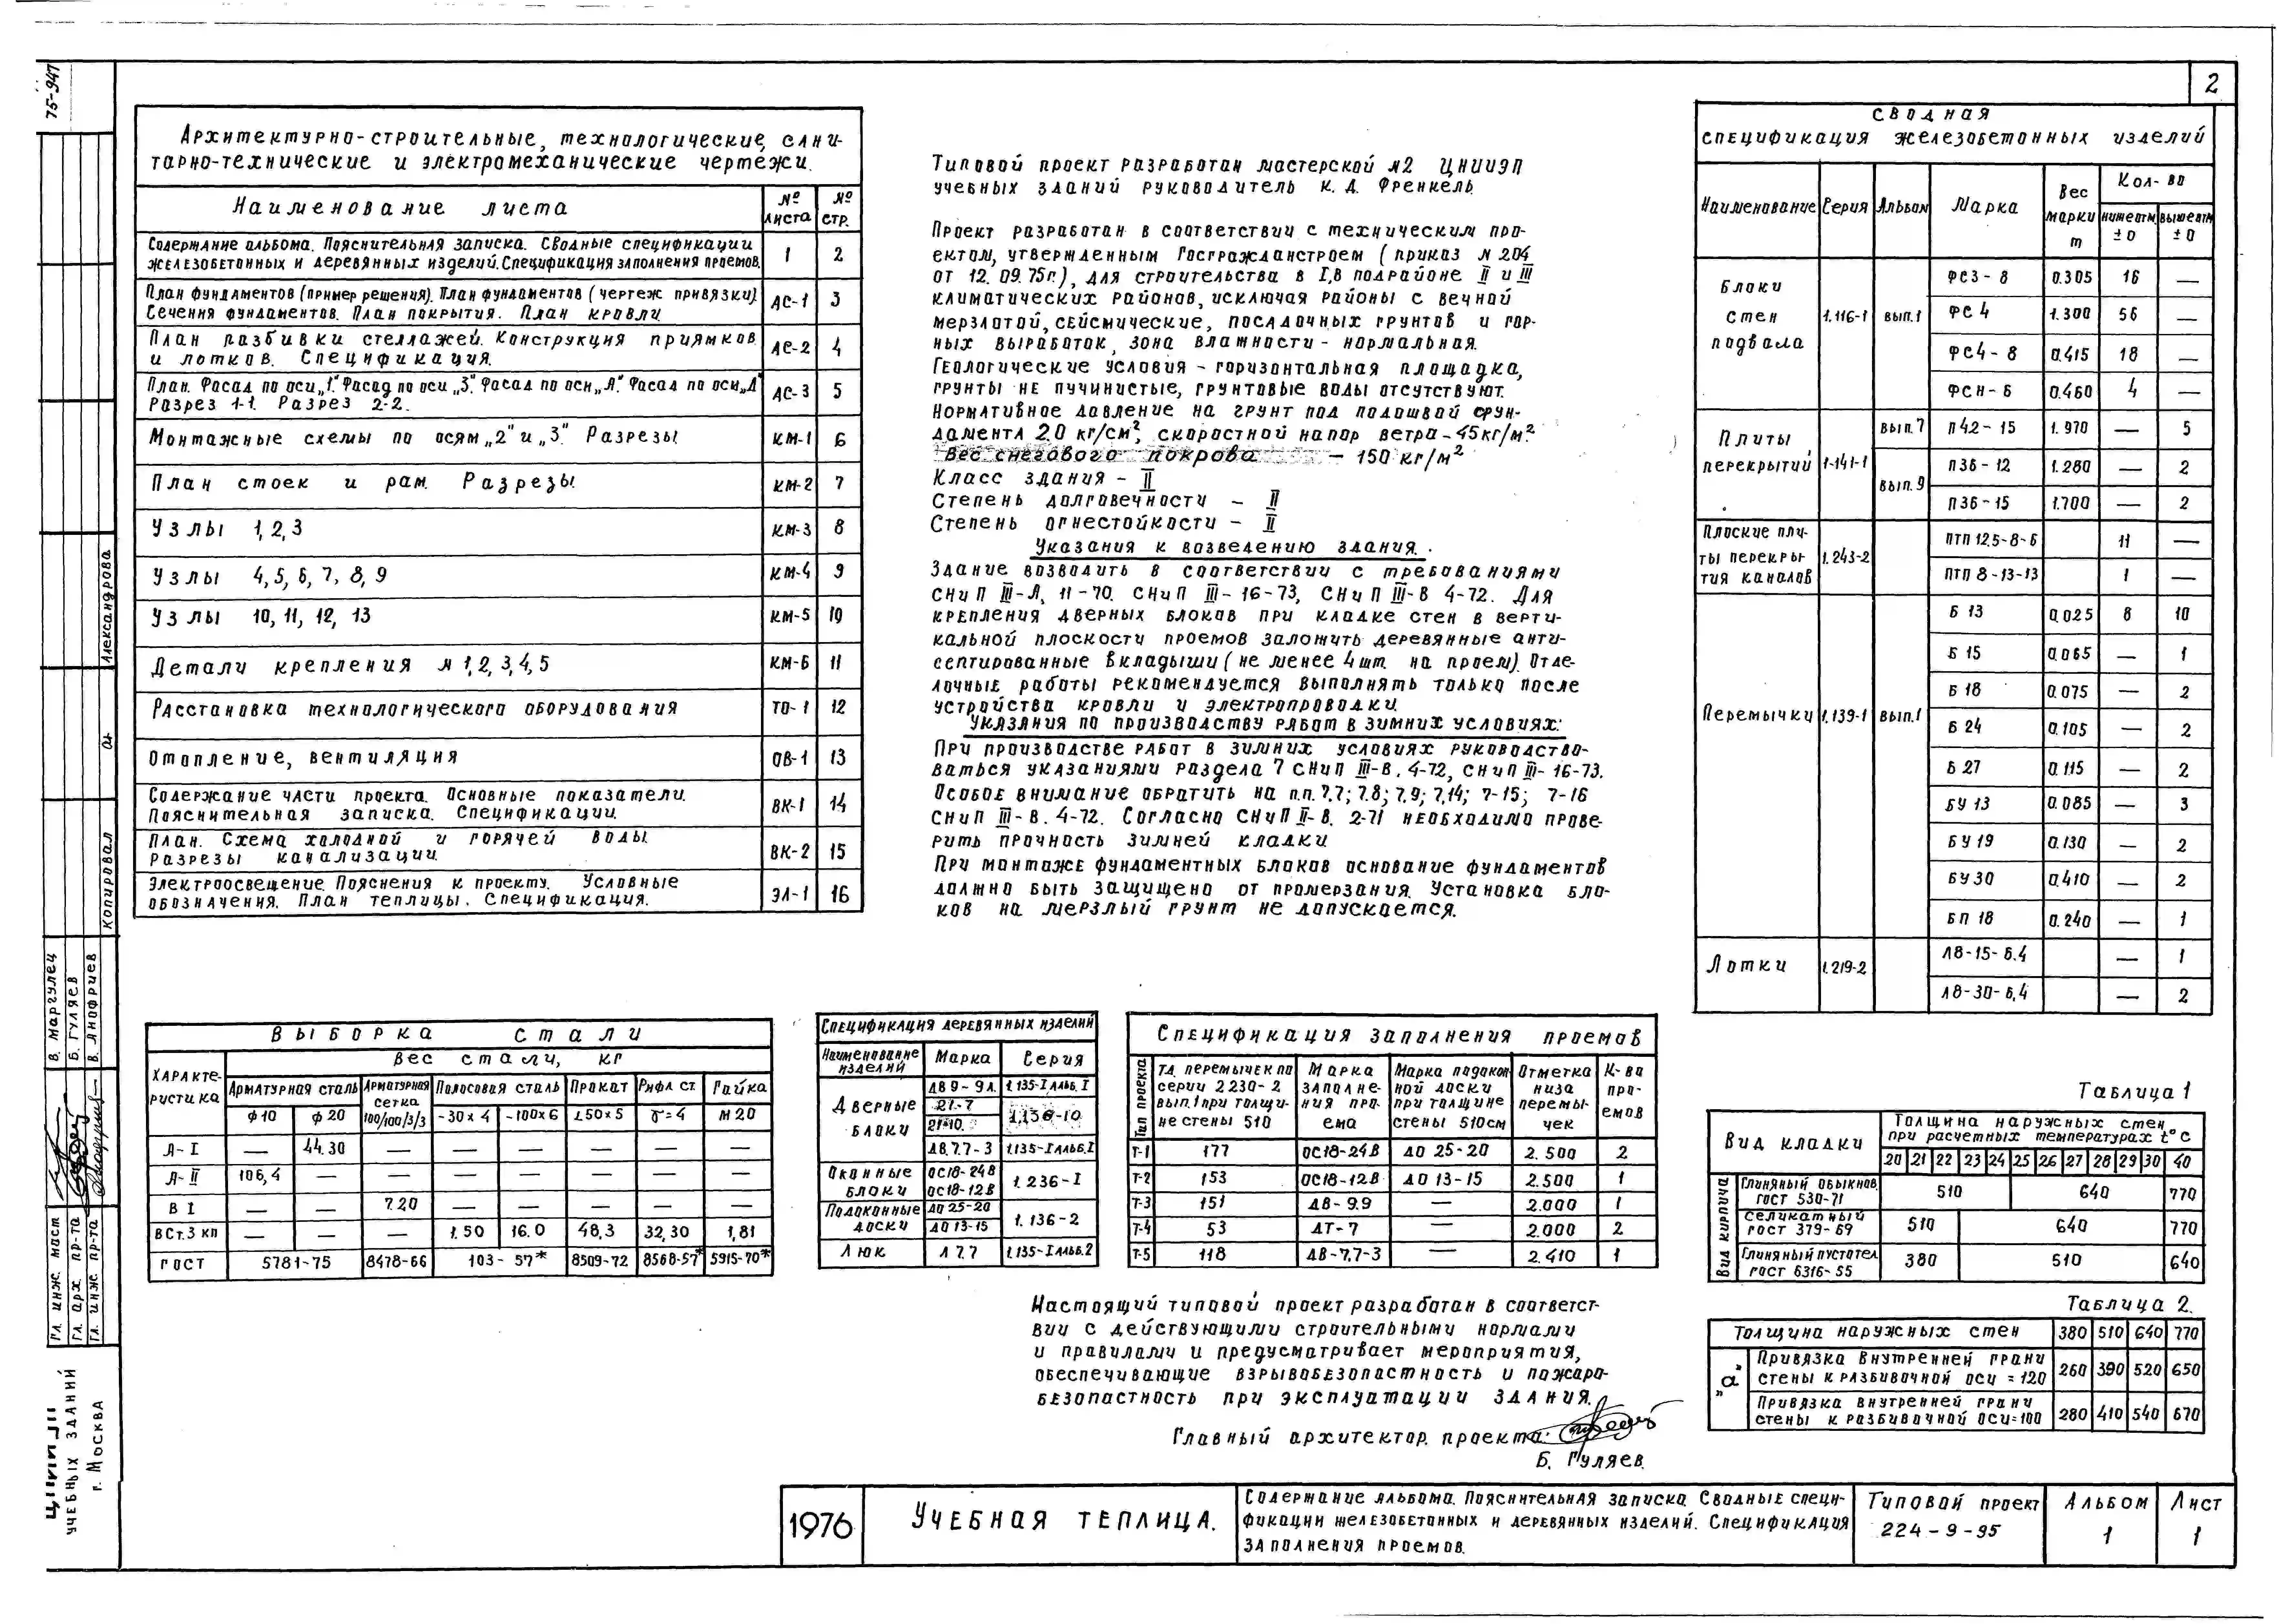 75-947
2
Архитектурно-строительные, технологические, сани-
тарно-технические и электромеханические чертежи.
Наименование листа
№ листа
№ стр.
Содержание альбома. Пояснительная записка. Сводные спецификации
железобетонных и деревянных изделий. Спецификация заполнения проемов.
1 2
План фундаментов (пример решения). План фундаментов (чертеж привязки)
Сечения фундаментов. План покрытия. План кровли
АС-1 3
План разбивки стеллажей. Конструкция приямков
и лотков. Спецификация.
АС-2 4
План. Фасад по оси „1". Фасад по оси „3". Фасад по оси „А". Фасад по оси „Д"
Разрез 1-1. Разрез 2-2.
АС-3 5
Монтажные схемы по осям „2" и „3". Разрезы КМ-1 6
План стоек и рам. Разрезы. КМ-2 7
Узлы 1, 2, 3 КМ-3 8
Узлы 4, 5, 6, 7, 8, 9 КМ-4 9
Узлы 10, 11, 12, 13 КМ-5 10
Детали крепления № 1, 2, 3, 4, 5 КМ-6 11
Расстановка технологического оборудования ТО-1 12
Отопление, вентиляция ОВ-1 13
Содержание части проекта. Основные показатели.
Пояснительная записка. Спецификации.
ВК-1 14
План. Схема холодной и горячей воды.
Разрезы канализации.
ВК-2 15
Электроосвещение. Пояснения к проекту. Условные
обозначения. План теплицы. Спецификация.
ЭЛ-1 16
Типовой проект разработан мастерской №2 ЦНИИЭП
учебных зданий руководитель К. Д. Френкель.
Проект разработан в соответствии с техническим про-
ектом, утвержденным Госгражданстроем (приказ № 204
от 12. 09. 75г.), для строительства в I,В подрайоне II и III
климатических районов, исключая районы с вечной
мерзлотой, сейсмические, посадочных грунтов и гор-
ных выработок, зона влажности - нормальная.
Геологические условия - горизонтальная площадка,
грунты не пучинистые, грунтовые воды отсутствуют.
Нормативное давление на грунт под подошвой фун-
дамента 2.0 кг/см², скоростной напор ветра - 45кг/м².
Вес снегового покрова — 150 кг/м²
Класс здания - II
Степень долговечности - II
Степень огнестойкости - II
Указания к возведению здания.
Здание возводить в соответствии с требованиями
СНиП III-А, 11-70. СНиП III-16-73, СНиП III-В 4-72. Для
крепления дверных блоков при кладке стен в верти-
кальной плоскости проемов заложить деревянные анти-
септированные вкладыши (не менее 4 шт. на проем). Отде-
лочные работы рекомендуется выполнять только после
устройства кровли и электропроводки.
Указания по производству работ в зимних условиях:
При производстве работ в зимних условиях руководство-
ваться указаниями раздела 7 СНиП III-В. 4-72, СНиП III-16-73.
Особое внимание обратить на п.п. 7.7; 7.8; 7.9; 7.14; 7-15; 7-16
СНиП III-В. 4-72. Согласно СНиП II-В. 2-71 необходимо прове-
рить прочность зимней кладки
При монтаже фундаментных блоков основание фундаментов
должно быть защищено от промерзания. Установка бло-
ков на мерзлый грунт не допускается.
Сводная
спецификация железобетонных изделий
Наименование Серия Альбом Марка Вес марки т Кол-во
ниже отм. ±0 выше отм. ±0
Блоки стен подвала 1.116-1 вып.1
ФС3-8 0.305 16 —
ФС4 1.300 56 —
ФС4-8 0.415 18 —
ФСН-6 0.460 4 —
Плиты перекрытий 1-141-1
вып.7 П42-15 1.970 — 5
вып.9 П36-12 1.280 — 2
П36-15 1.700 — 2
Плоские плиты перекрытия каналов 1.243-2
ПТП 12,5-8-6 11 —
ПТП 8-13-13 1 —
Перемычки 1.139-1 вып.1
Б 13 0.025 8 10
Б 15 0.065 — 1
Б 18 0.075 — 2
Б 24 0.105 — 2
Б 27 0.115 — 2
БУ 13 0.085 — 3
БУ 19 0.130 — 2
БУ 30 0.410 — 2
БП 18 0.240 — 1
Лотки 1.219-2
Л8-15-6.4 — 1
Л8-30-6,4 — 2
Выборка стали
Характеристика
Вес стали, кг
Арматурная сталь Арматурная сетка Полосовая сталь Прокат Рифл ст. Гайка
ф10 ф20 100/100/3/3 -30х4 -100х6 L50х5 δ=4 М20
А-I — 44.30 — — — — — —
А-II 106,4 — — — — — — —
В I — — 7.20 — — — — —
ВСт.3 кп — — — 1.50 16.0 48,3 32,30 1,81
ГОСТ 5781-75 8478-66 103-57* 8509-72 8568-57* 5915-70*
Спецификация деревянных изделий
Наименование изделий Марка Серия
Дверные блоки
ДВ 9-9Л. 1.135-1 Альб. 1
21-7
21-10. 1.136-10
ДВ.7.7-3 1.135-1 Альб.1
Оконные блоки ОС18-24В
ОС18-12В 1.236-1
Подоконные доски ДО 25-20
ДО 13-15 1.136-2
Люк Л 7.7 1.135-1 Альб.2
Спецификация заполнения проемов
Тип проекта
Тд. перемычек по серии 2230-2 вып.1 при толщине стены 510
Марка заполнения проема
Марка подоконной доски при толщине стены 510см
Отметка низа перемычек
К-во проемов
Т-1 177 ОС18-24В ДО 25-20 2.500 2
Т-2 153 ОС18-12В ДО 13-15 2.500 1
Т-3 151 ДВ-9.9 — 2.000 1
Т-4 53 ДТ-7 — 2.000 2
Т-5 118 ДВ-7,7-3 — 2.410 1
Таблица 1
Вид кладки
Толщина наружных стен
при расчетных температурах t°С
20 21 22 23 24 25 26 27 28 29 30 40
Вид кирпича
Глиняный обыкнов. ГОСТ 530-71 510 640 770
Селикатный ГОСТ 379-69 510 640 770
Глиняный пустотел. ГОСТ 6316-55 380 510 640
Таблица 2.
Толщина наружных стен 380 510 640 770
„а"
Привязка внутренней грани
стены к разбивочной оси = 120 260 390 520 650
Привязка внутренней грани
стены к разбивочной оси=100 280 410 540 670
Настоящий типовой проект разработан в соответст-
вии с действующими строительными нормами
и правилами и предусматривает мероприятия,
обеспечивающие взрывобезопастность и пожаро-
безопастность при эксплуатации здания.
Главный архитектор проекта:
Б. Гуляев.
1976
Учебная теплица.
Содержание альбома. Пояснительная записка. Сводные специ-
фикации железобетонных и деревянных изделий. Спецификация
заполнения проемов.
Типовой проект
224-9-95
Альбом
1
Лист
1
Александрова
Копировал
В. Маргулец
Б. Гуляев
В. Анофриев
Гл. инж. маст
Гл. арх. пр-та
Гл. инж. пр-та
учебных зданий
г. Москва